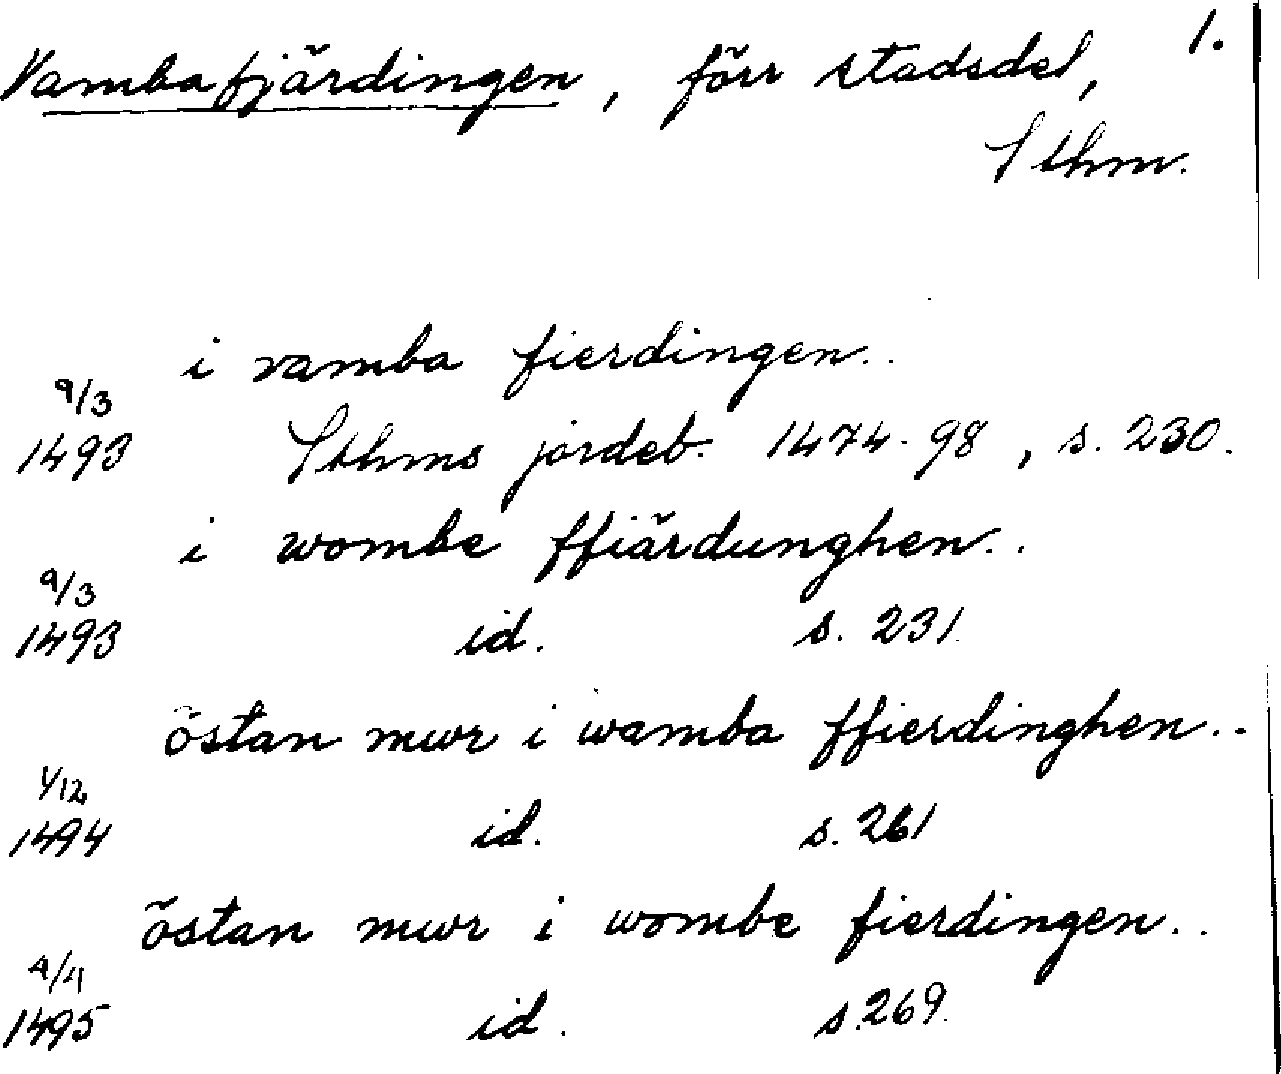 1.
Vambafjärdingen, förr stadsdel,
Sthm.
i vamba fierdingen..
9/3
1493 Sthms jordeb. 1474-98, s. 230.
i wombe ffiärdunghen..
9/3
1493 id. s. 231.
östan mwr i wamba ffierdinghen..
1/12
1494 id. s. 261
östan mwr i wombe fierdingen..
4/4
1495 id. s. 269.